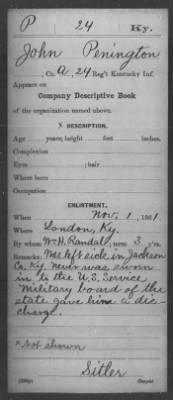 P 24 Ky.
John Penington
, Co. A, 24 Reg't Kentucky Inf.
Appears on
Company Descriptive Book
of the organization named above.
X DESCRIPTION.
Age years; height feet inches.
Complexion
Eyes ; hair
Where born
Occupation
ENLISTMENT.
When Nov. 1, 1861.
Where London, Ky.
By whom W. H. Randal; term 3 y'rs.
Remarks: Was left sick in Jackson
Co. Ky. Never was sworn
in to the U.S. Service
Military board of the
state gave him a dis-
charge.
X Not shown
Sitler
Copyist.